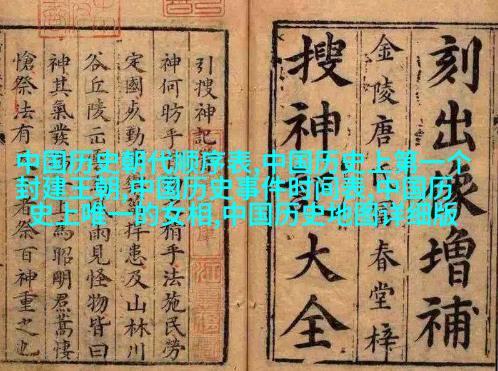 刻出像增補
搜神記大全
金陵唐氏富春堂梓
引搜神記首
神何昉乎
稍手法施民勞
定國
捍患及山林川
谷丘陵
雨見怪物皆曰
神其氣發
昭明焄蒿悽
愴祭法有
者祭百神重之也
中国历史朝代顺序表,中国历史上第一个
封建王朝,中国历史事件时间表,中国历
史上唯一的女相,中国历史地图详细版